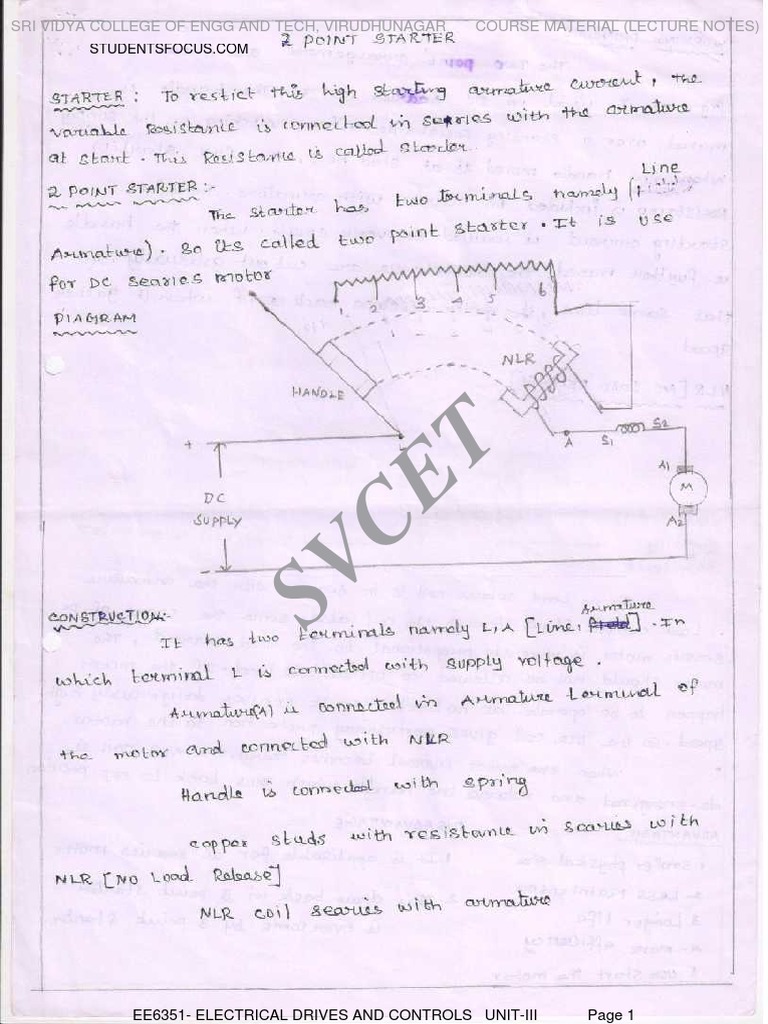 SRI VIDYA COLLEGE OF ENGG AND TECH, VIRUDHUNAGAR COURSE MATERIAL (LECTURE NOTES)
STUDENTSFOCUS.COM
2 POINT STARTER
STARTER : To restict this high starting armature current, the
variable Resistance is connected in searies with the armature
at start. This Resistance is called Starter.
Line
2 POINT STARTER:-
The starter has two terminals namely (
Armature). So Its called two point starter. It is use
for DC searies motor
DIAGRAM
1 2 3 4 5 6
NLR
HANDLE
L
A S1 S2
+
A1
M
A2
DC
SUPPLY
-
SVCET
CONSTRUCTION:-
Armature
It has two terminals namely L, A [Line, ]. In
which terminal L is connected with supply voltage.
Armature(A) is connected in Armature terminal of
the motor and connected with NLR
Handle is connected with spring
copper studs with resistance in searies with
NLR [NO Load Release]
NLR coil searies with armature
EE6351- ELECTRICAL DRIVES AND CONTROLS UNIT-III Page 1